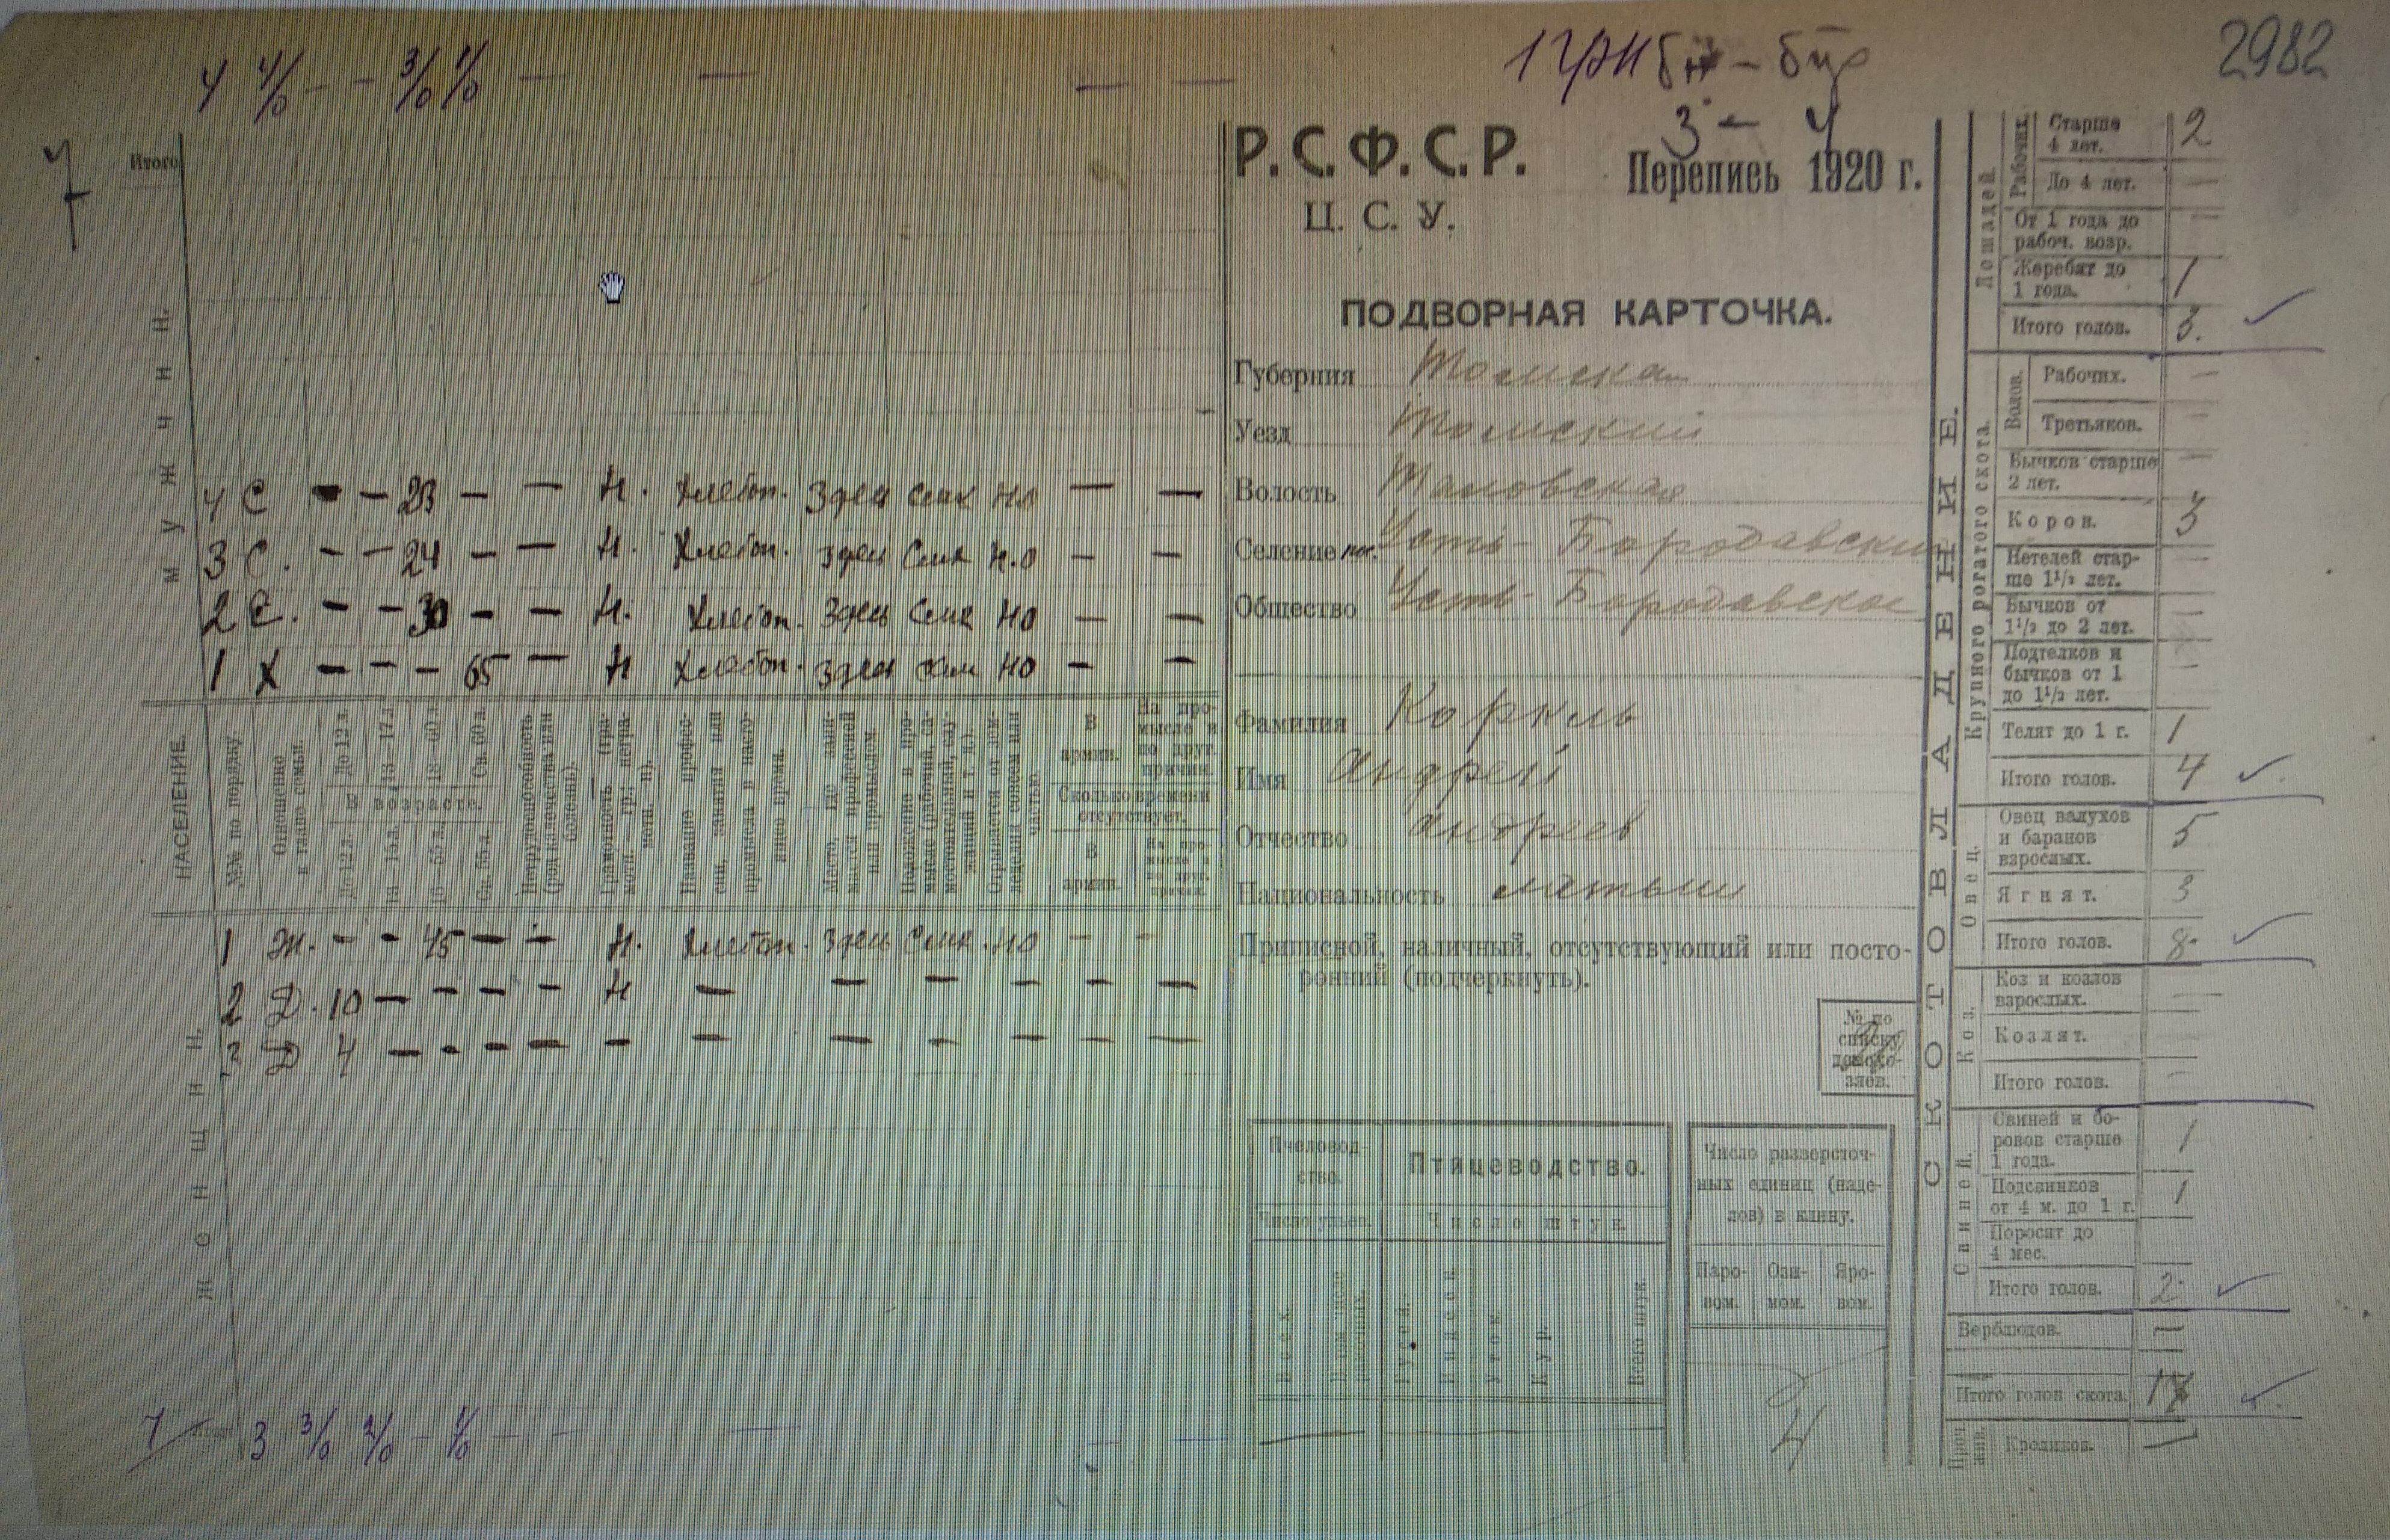 2982
4 4/0 - - 3/0 1/0 - - - -
7
Итого
М У Ж Ч И Н.
4 С - - 23 - - Н. Хлебоп. Здесь Сам НО - -
3 С. - - 24 - - Н. Хлебоп. Здесь Сам Н.О - -
2 С. - - 30 - - Н. Хлебоп. Здесь Сам НО - -
1 Х - - - 65 - Н Хлебоп. Здесь НО - -
НАСЕЛЕНИЕ.
№№ по порядку.
Отношение к главе семьи.
До 12 л.
13—17 л.
18—60 л.
Св. 60 л.
В возрасте.
До 12 л.
13—15 л.
16—55 л.
Св. 55 л.
Нетрудоспособность (род калечества или болезнь).
Грамотность (грамотн.—гр.; неграмотн.—н).
Название профессии, занятия или промысла в настоящее время.
Место, где занимается профессией или промыслом.
Положение в промысле (рабочий, самостоятельный, служащий и т. д.).
Отрывается от земледелия совсем или частью.
В армии.
На промысле и по друг. причин.
Сколько времени отсутствует.
В армии.
На промысле и по друг. причин.
1 Ж. - - 45 - - Н. Хлебоп. Здесь Сам. НО - -
2 Д. 10 - - - - Н - - - - - -
3 Д 4 - - - - - - - - - - -
Ж Е Н Щ И Н.
7 Итого 3 3/0 2/0 - 1/0 - - - - -
3 - 4
Р. С. Ф. С. Р.
Перепись 1920 г.
Ц. С. У.
ПОДВОРНАЯ КАРТОЧКА.
Губерния Томская
Уезд Томский
Волость
Селение пос. Усть-Бородавский
Общество Усть-Бородавское
Фамилия
Имя Андрей
Отчество Андреев
Национальность латыш
Приписной, наличный, отсутствующий или посто-
ронний (подчеркнуть).
№ по
списку
домохо-
зяев.
Пчеловод-
ство.
Число ульев.
Всех.
В том числе рамочных.
Птицеводство.
Число штук.
Гусей.
Индеек.
Уток.
Кур.
Всего штук.
Число разверсточ-
ных единиц (наде-
лов) в клину.
Паро-
вом.
Ози-
мом.
Яро-
вом.
4
СКОТОВЛАДЕНИЕ.
Лошадей.
Рабочих.
Старше 4 лет. 2
До 4 лет. —
От 1 года до рабоч. возр. —
Жеребят до 1 года. 1
Итого голов. 3.
Крупного рогатого скота.
Волов.
Рабочих. —
Третьяков. —
Бычков старше 2 лет. —
Коров. 3
Нетелей старше 1 1/2 лет. —
Бычков от 1 1/2 до 2 лет. —
Подтелков и бычков от 1 до 1 1/2 лет. —
Телят до 1 г. 1
Итого голов. 4
Овец.
Овец валухов и баранов взрослых. 5
Ягнят. 3
Итого голов. 8.
Коз.
Коз и козлов взрослых. —
Козлят. —
Итого голов. —
Свиней.
Свиней и боровов старше 1 года. 1
Подсвинков от 4 м. до 1 г. 1
Поросят до 4 мес.
Итого голов. 2
Верблюдов. —
Итого голов скота. 17
Проч. жив.
Кроликов. —